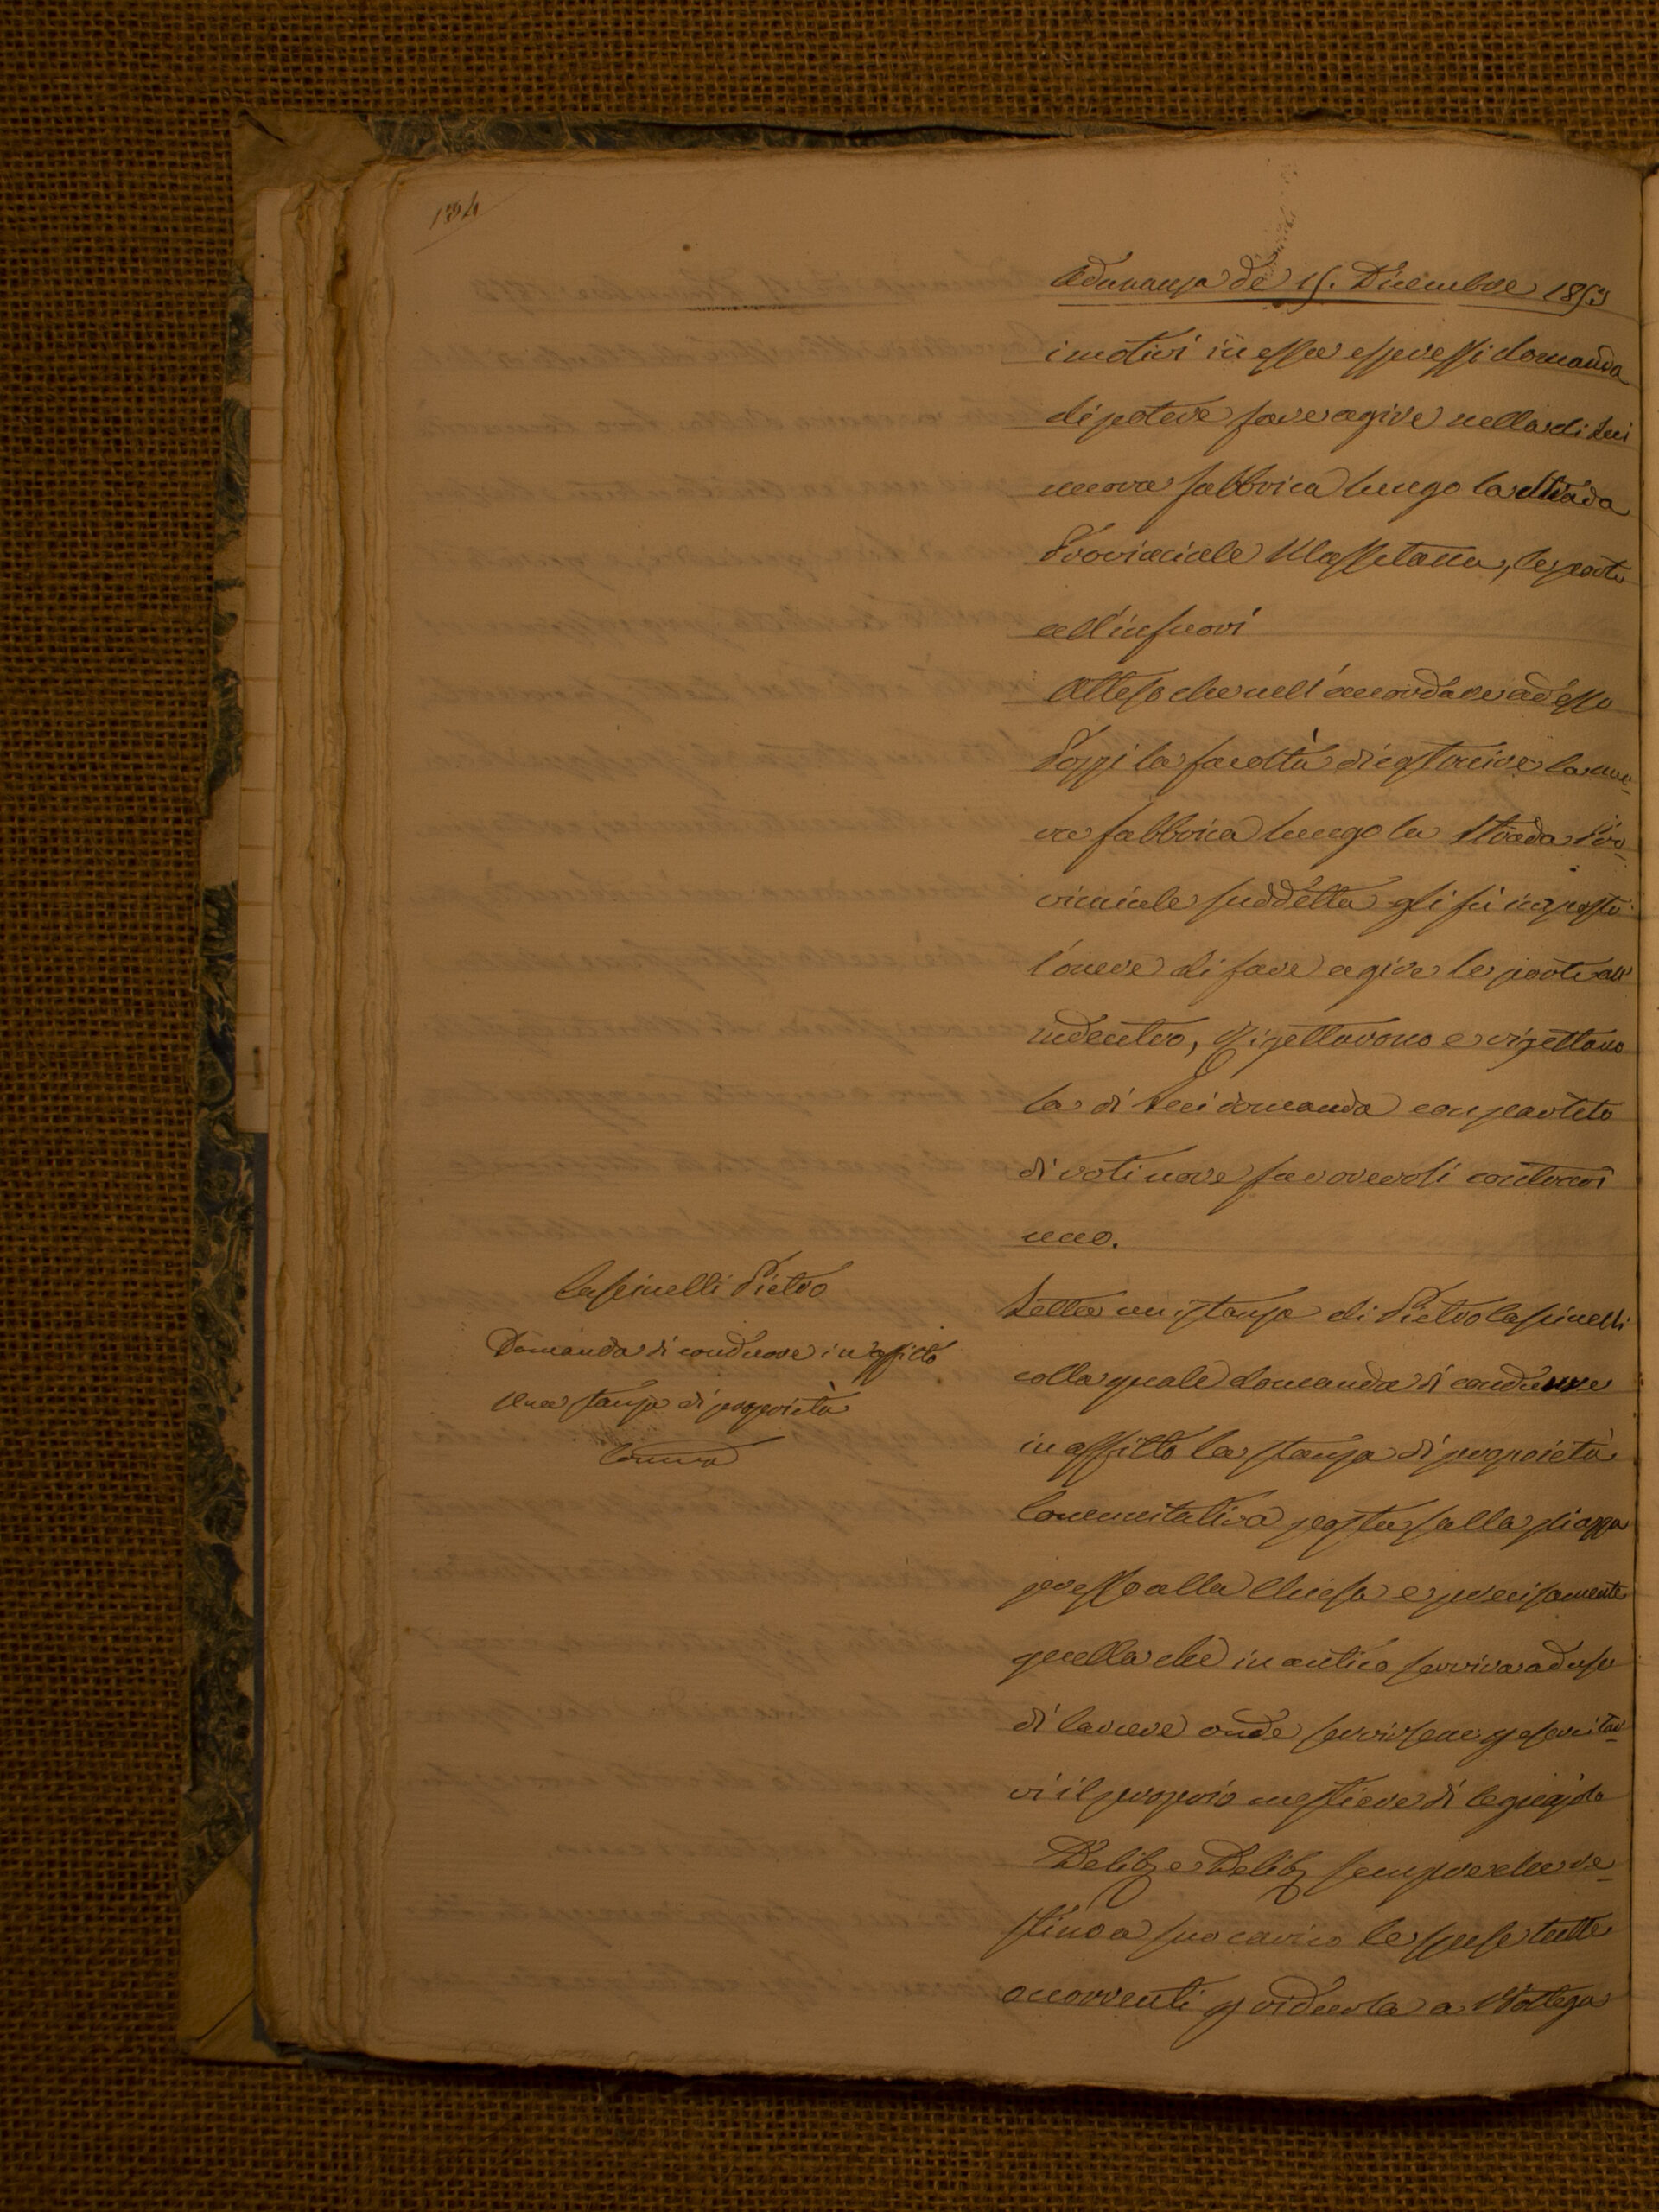 134
Adunanza de' 15. Dicembre 1853
i motivi in essa espressi domanda
di potere fare agire nella di Lui
nuova fabbrica lungo la Strada
Provinciale Massetana, le porte
all'infuori
Atteso che nell'accordare ad esso
Pozzi la facoltà di costruire la nuo„
va fabbrica lungo la Strada Pro„
vinciale suddetta gli fu imposto
l'onere di fare agire le porte all'
indentro, Rigettarono e rigettano
la di Lui domanda con partito
di voti nove favorevoli contrari
uno.
Cascinelli Pietro
Domanda di condurre in affitto
una stanza di proprietà
Comva
Letta un istanza di Pietro Cascinelli
colla quale domanda di condurre
in affitto la stanza di proprietà
Comunitativa posta sulla piazza
presso alla Chiesa e precisamente
quella che in antico serviva ad uso
di Carcere onde servirsene p esercitar„
vi il proprio mestiere di legnajolo
Delibe e Delib sempre che re„
stino a suo carico le spese tutte
occorrenti p ridurla a Bottega